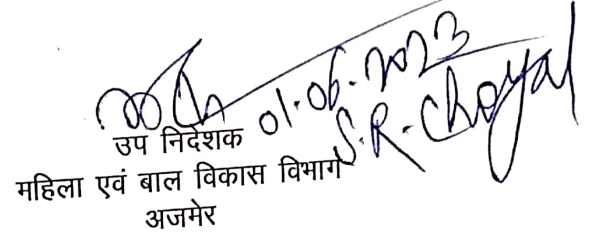 01.06.2023
S.R. Choyal
उप निदेशक
महिला एवं बाल विकास विभाग
अजमेर